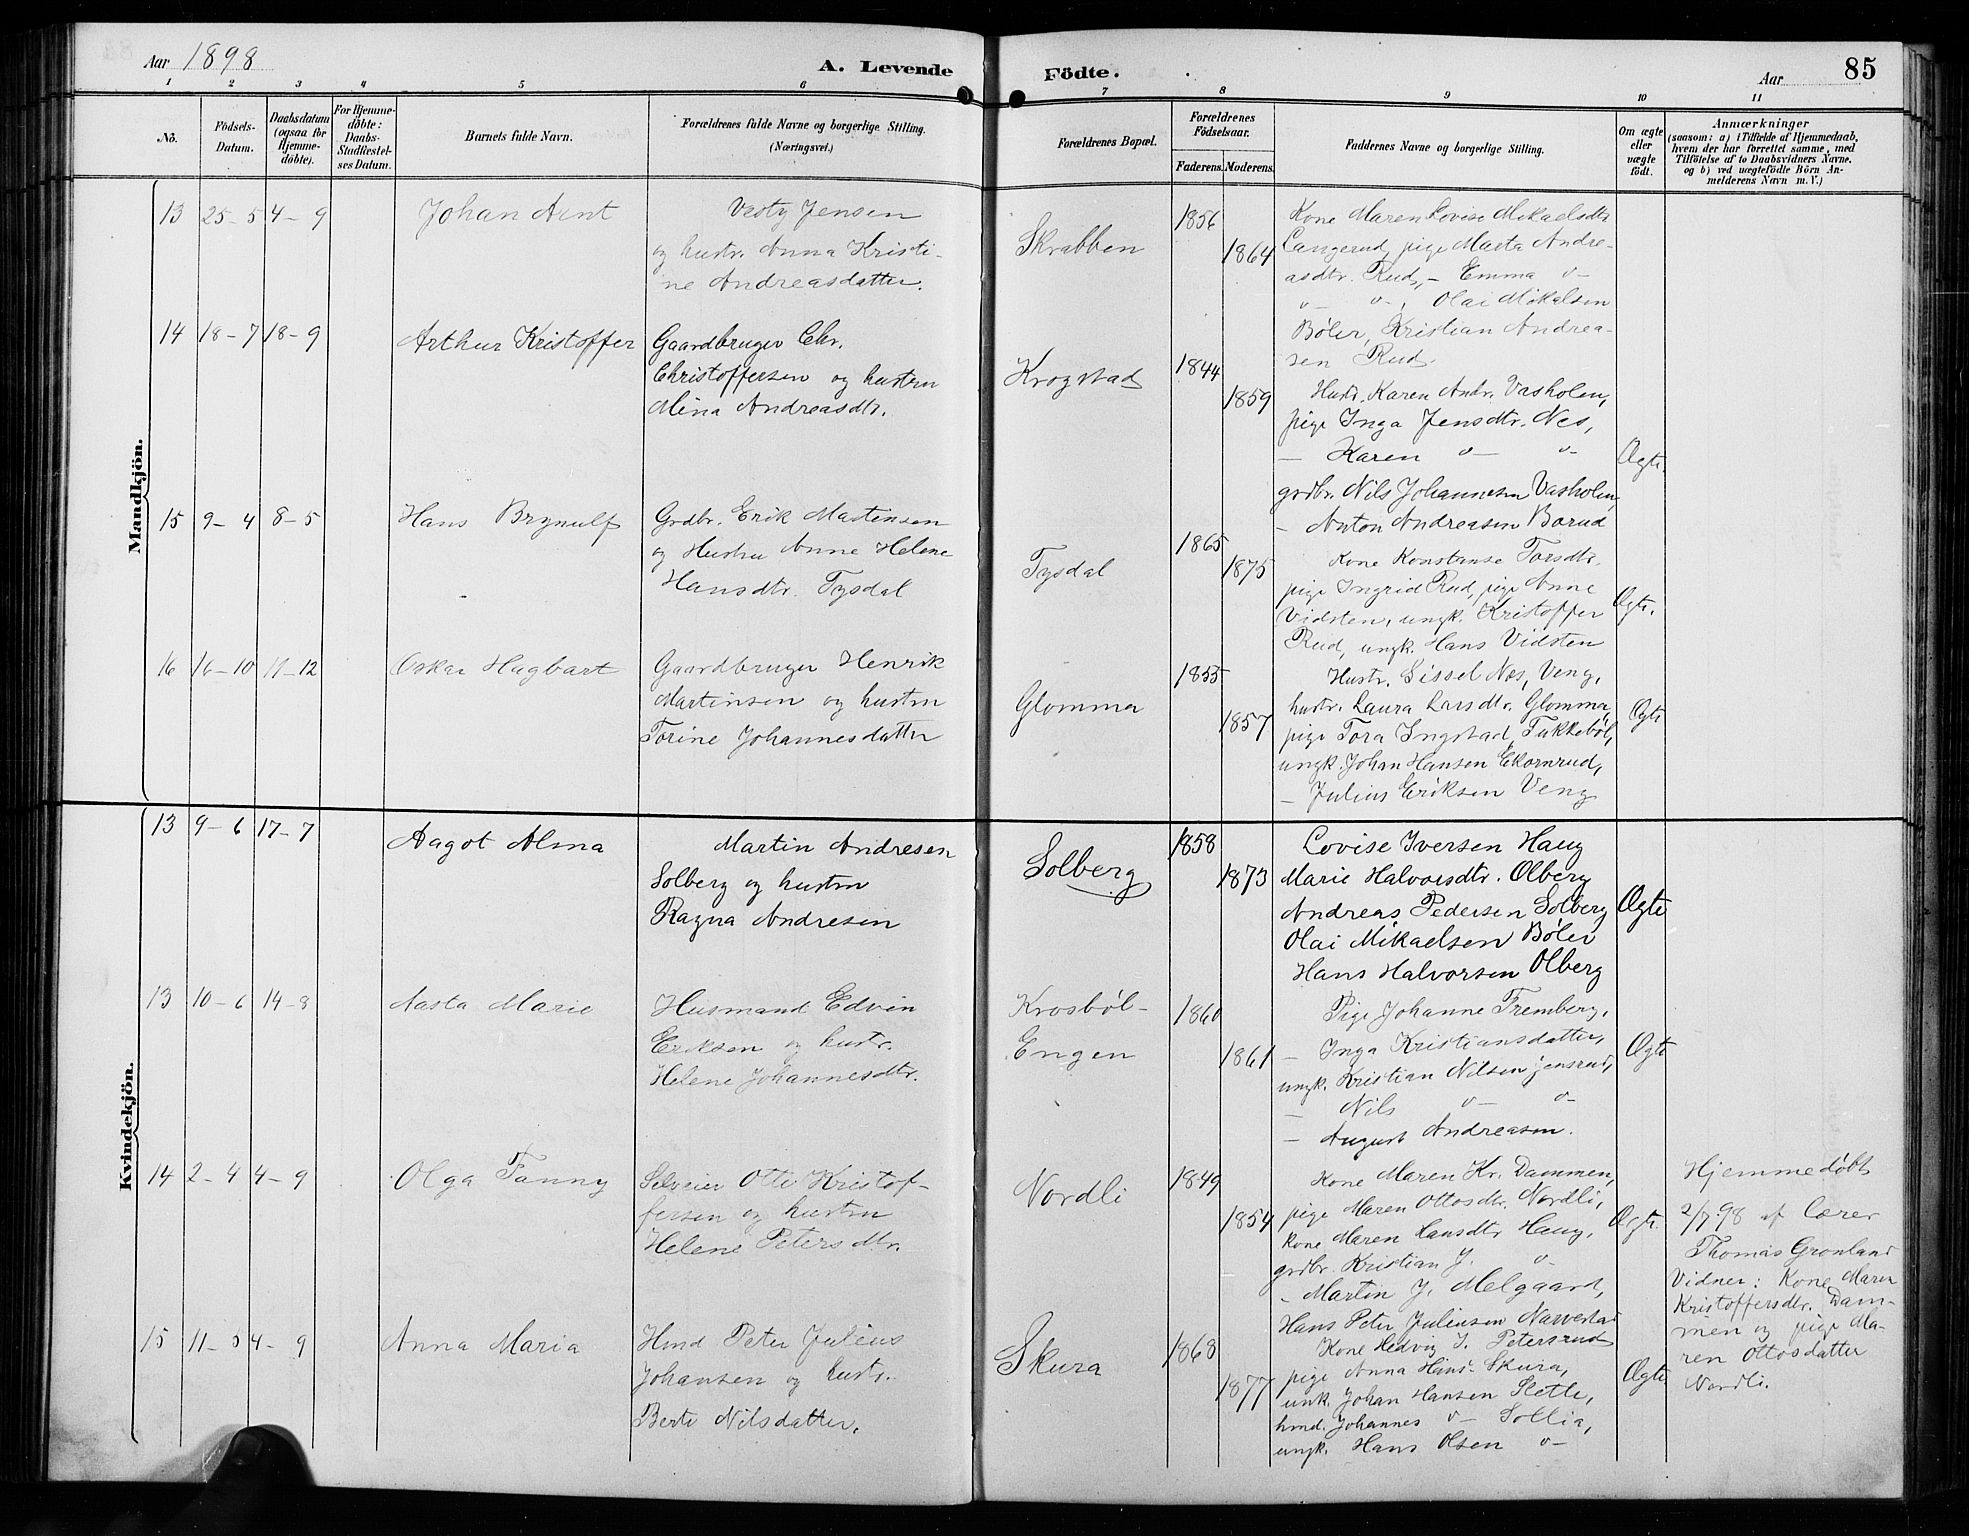 Aar 1898
A. Levende Födte.
Aar
85
1 2 3 4 5 6 7 8 9 10 11
No.
Födsels-Datum.
Daabsdatum (ogsaa for Hjemmedöbte).
For Hjemmedöbte: Daabs-Stadfæstelses Datum.
Barnets fulde Navn.
Forældrenes fulde Navne og borgerlige Stilling. (Næringsvei.)
Forældrenes Bopæl.
Forældrenes Födselsaar.
Faderens. Moderens.
Faddernes Navne og borgerlige Stilling.
Om ægte eller uægte födt.
Anmærkninger
(saasom: a) i Tilfælde af Hjemmedaab,
hvem der har forrettet samme, med
Tilföielse af to Daabsvidners Navne,
og b) ved uægtefödte Börn Anmelderens Navn m. V.)
Mandkjön.
13 25-5 4-9 Johan Arnt
Jensen
og hustr. Anna Kristi-
ne Andreasdatter.
Skrabben
1856
1864
Kone Maren Lovise Mikaelsdtr
Langerud, pige Marta Andre-
asdtr. Rud, - Emma v-
v- v-, Olai Mikalsen
Bøler, Kristian Andrea-
sen Rud.
14 18-7 18-9 Arthur Kristoffer
Gaardbruger Chr.
Christoffersen og hustru
Mina Andreasdtr.
Krogstad
1844
1859
Hustr. Karen Andr. Vasholen,
pige Inga Jensdtr. Nes,
- Karen v- v-
grdbr. Nils Johannesen Vasholen,
- Anton Andreasen Borud
Ægte.
15 9-4 8-5 Hans Brynulf
Grdbr. Erik Martensen
og Hustru Anne Helene
Hansdtr. Tysdal
Tysdal
1865
1875
Kone Konstanse Torsdtr.
pige Ingrid Rud, pige Anne
Vidsten, ungk. Kristoffer
Rud, ungk. Hans Vidsten
Ægte.
16 16-10 11-12 Oskar Hagbart
Gaardbruger Henrik
Martinsen og hustru
Torine Johannesdatter
Glomma
1855
1857
Hustr. Sissel Nes, Veng,
hustr. Laura Larsdtr. Glomma,
pige Tora Ingstad, Tukkebøl,
ungk. Johan Hansen Ekornrud,
- Julius Eriksen Veng
Ægte
Kvindekjön.
13 9-6 17-7 Aagot Alma
Martin Andresen
Solberg og hustru
Ragna Andresen
Solberg
1858
1873
Lovise Iversen Haug
Marie Halvorsdtr. Olberg
Andreas Pedersen Solberg
Olai Mikaelsen Bøler
Hans Halvorsen Olberg
Ægte
13 10-6 14-8 Aasta Marie
Husmand Edvin
Eriksen og hustr.
Helene Johannesdtr.
Krosbøl-
Engen
1860
1861
Pige Johanne Fremberg,
- Inga Kristiansdatter,
ungk. Kristian Nilsen jensrud,
- Nils v- v-
- August Andreasen.
Ægte
14 2-4 4-9 Olga Fanny
Selveier Otto Kristof-
fersen og hustru
Helene Petersdtr.
Nordli
1849
1854
Kone Maren Kr. Dammen,
pige Maren Ottosdtr. Nordli,
kone Maren Hansdtr Haug,
grdbr. Kristian J. v-
- Martin J. Melgaard,
Hans Peter Juliusen
Ægte.
Hjemmedøbt
2/7.98 af Lærer
Thomas Grønland
Vidner: Kone Maren
Kristoffersdtr. Dam-
men og pige Ma-
ren Ottosdatter
Nordli.
15 11-5 4-9 Anna Maria
Hmd Peter Julius
Johansen og hustr.
Berte Nilsdatter.
Skura
1868
1877
Kone Hedvig J. Petersrud
pige Anna Skura,
unk. Johan Hansen Slette,
hmd. Johannes v- Sollia,
ungk. Hans Olsen v-
Ægte